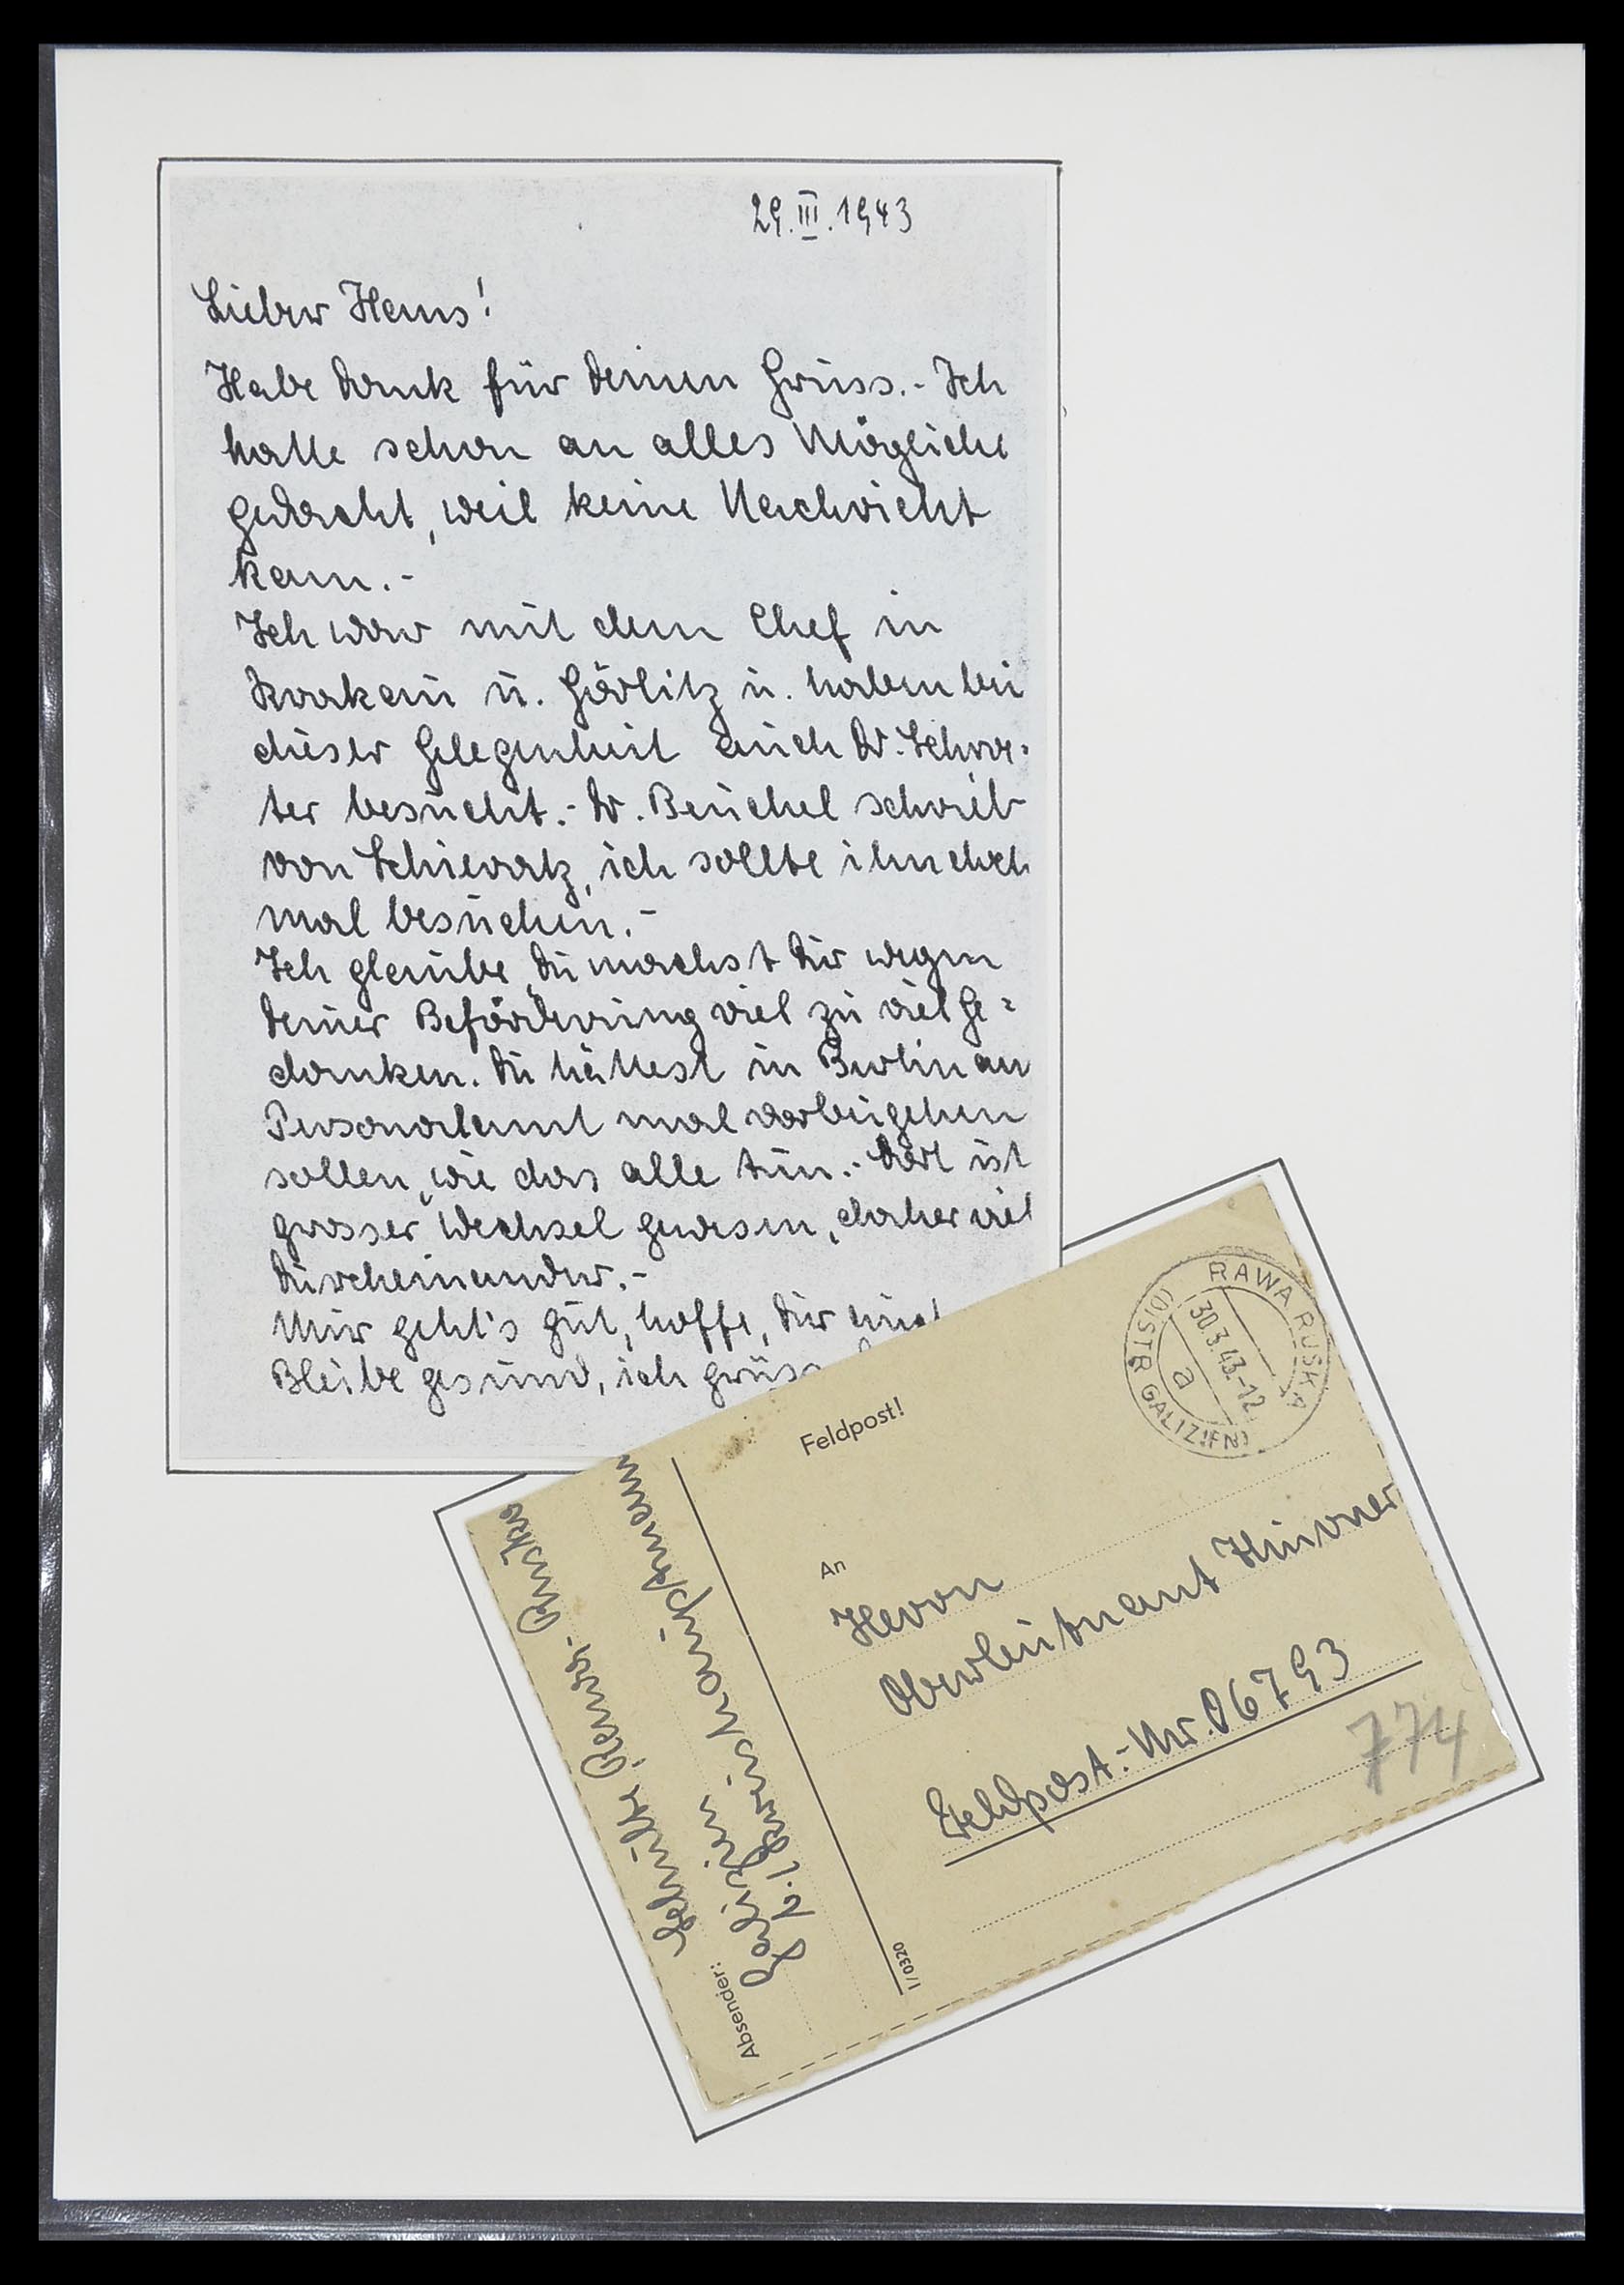 29.III.1943
Lieber Hans!
Habe Dank für Deinen Gruss.- Ich
hatte schon an alles Mögliche
gedacht, weil keine Nachricht
kam.-
Ich war mit dem Chef in
Krakau u. Görlitz u. haben bei
dieser Gelegenheit auch Dr. Schrö-
ter besucht.- Dr. Beuchel schrieb
von Schieratz, ich sollte ihn doch
mal besuchen.-
Ich glaube, Du machst Dir wegen
Deiner Beförderung viel zu viel Ge-
danken. Du hättest in Berlin am
Personalamt mal vorbeigehen
sollen, wie das alle tun.- Dort ist
grosser Wechsel gewesen, daher viel
Durcheinander.-
Mir geht's gut, hoffe, Dir auch
Bleibe gesund, ich grüsse
Feldpost!
RAWA RUSKA
30.3.43.-12
a
(DISTR GALIZIEN)
An
Herrn
Oberleutnant
Feldpost-Nr. 06793
774
Absender:
Galizien
I/0320